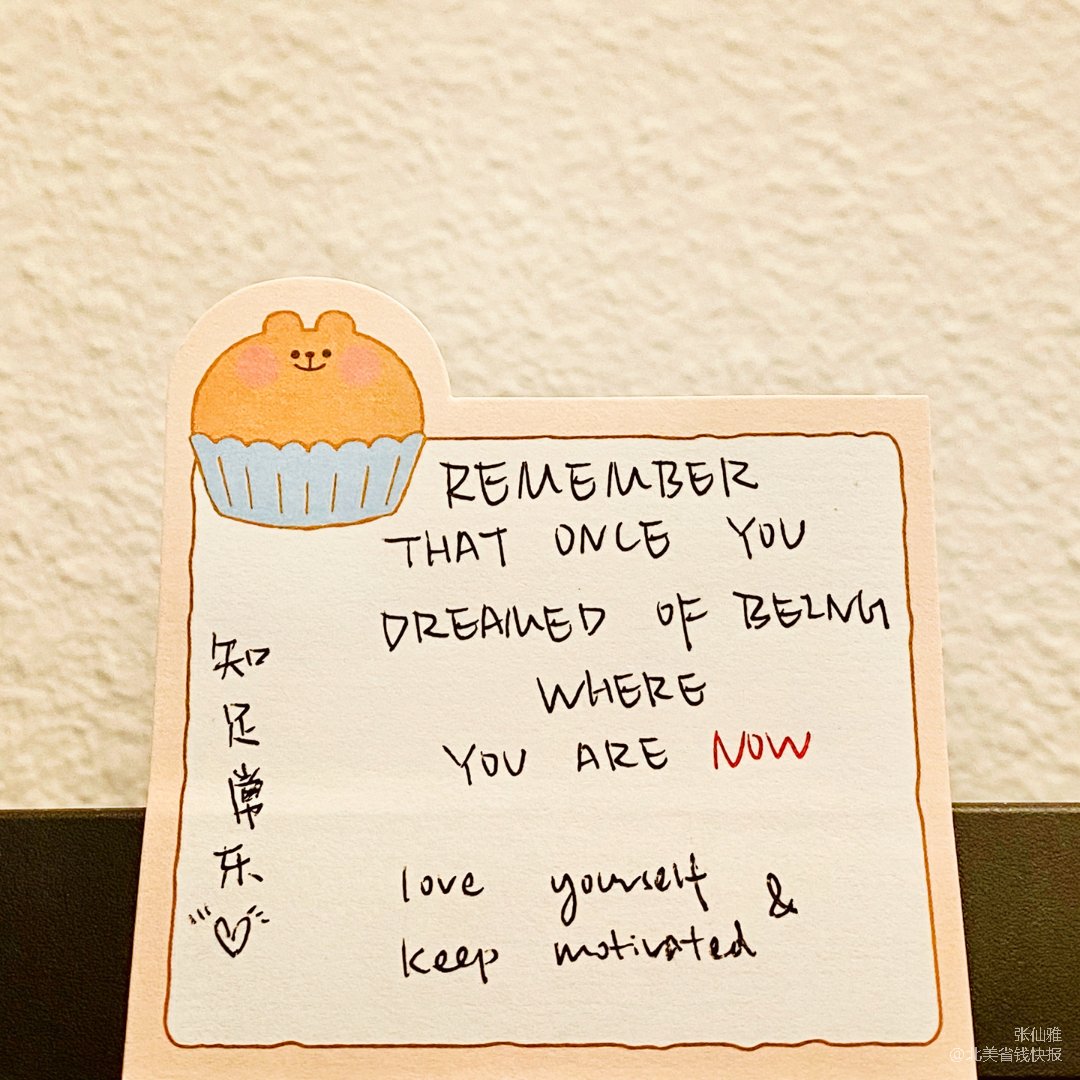 REMEMBER
THAT ONCE YOU
DREAMED OF BEING
WHERE
YOU ARE NOW
love yourself &
keep motivated
知足常乐
张仙雅
@北美省钱快报